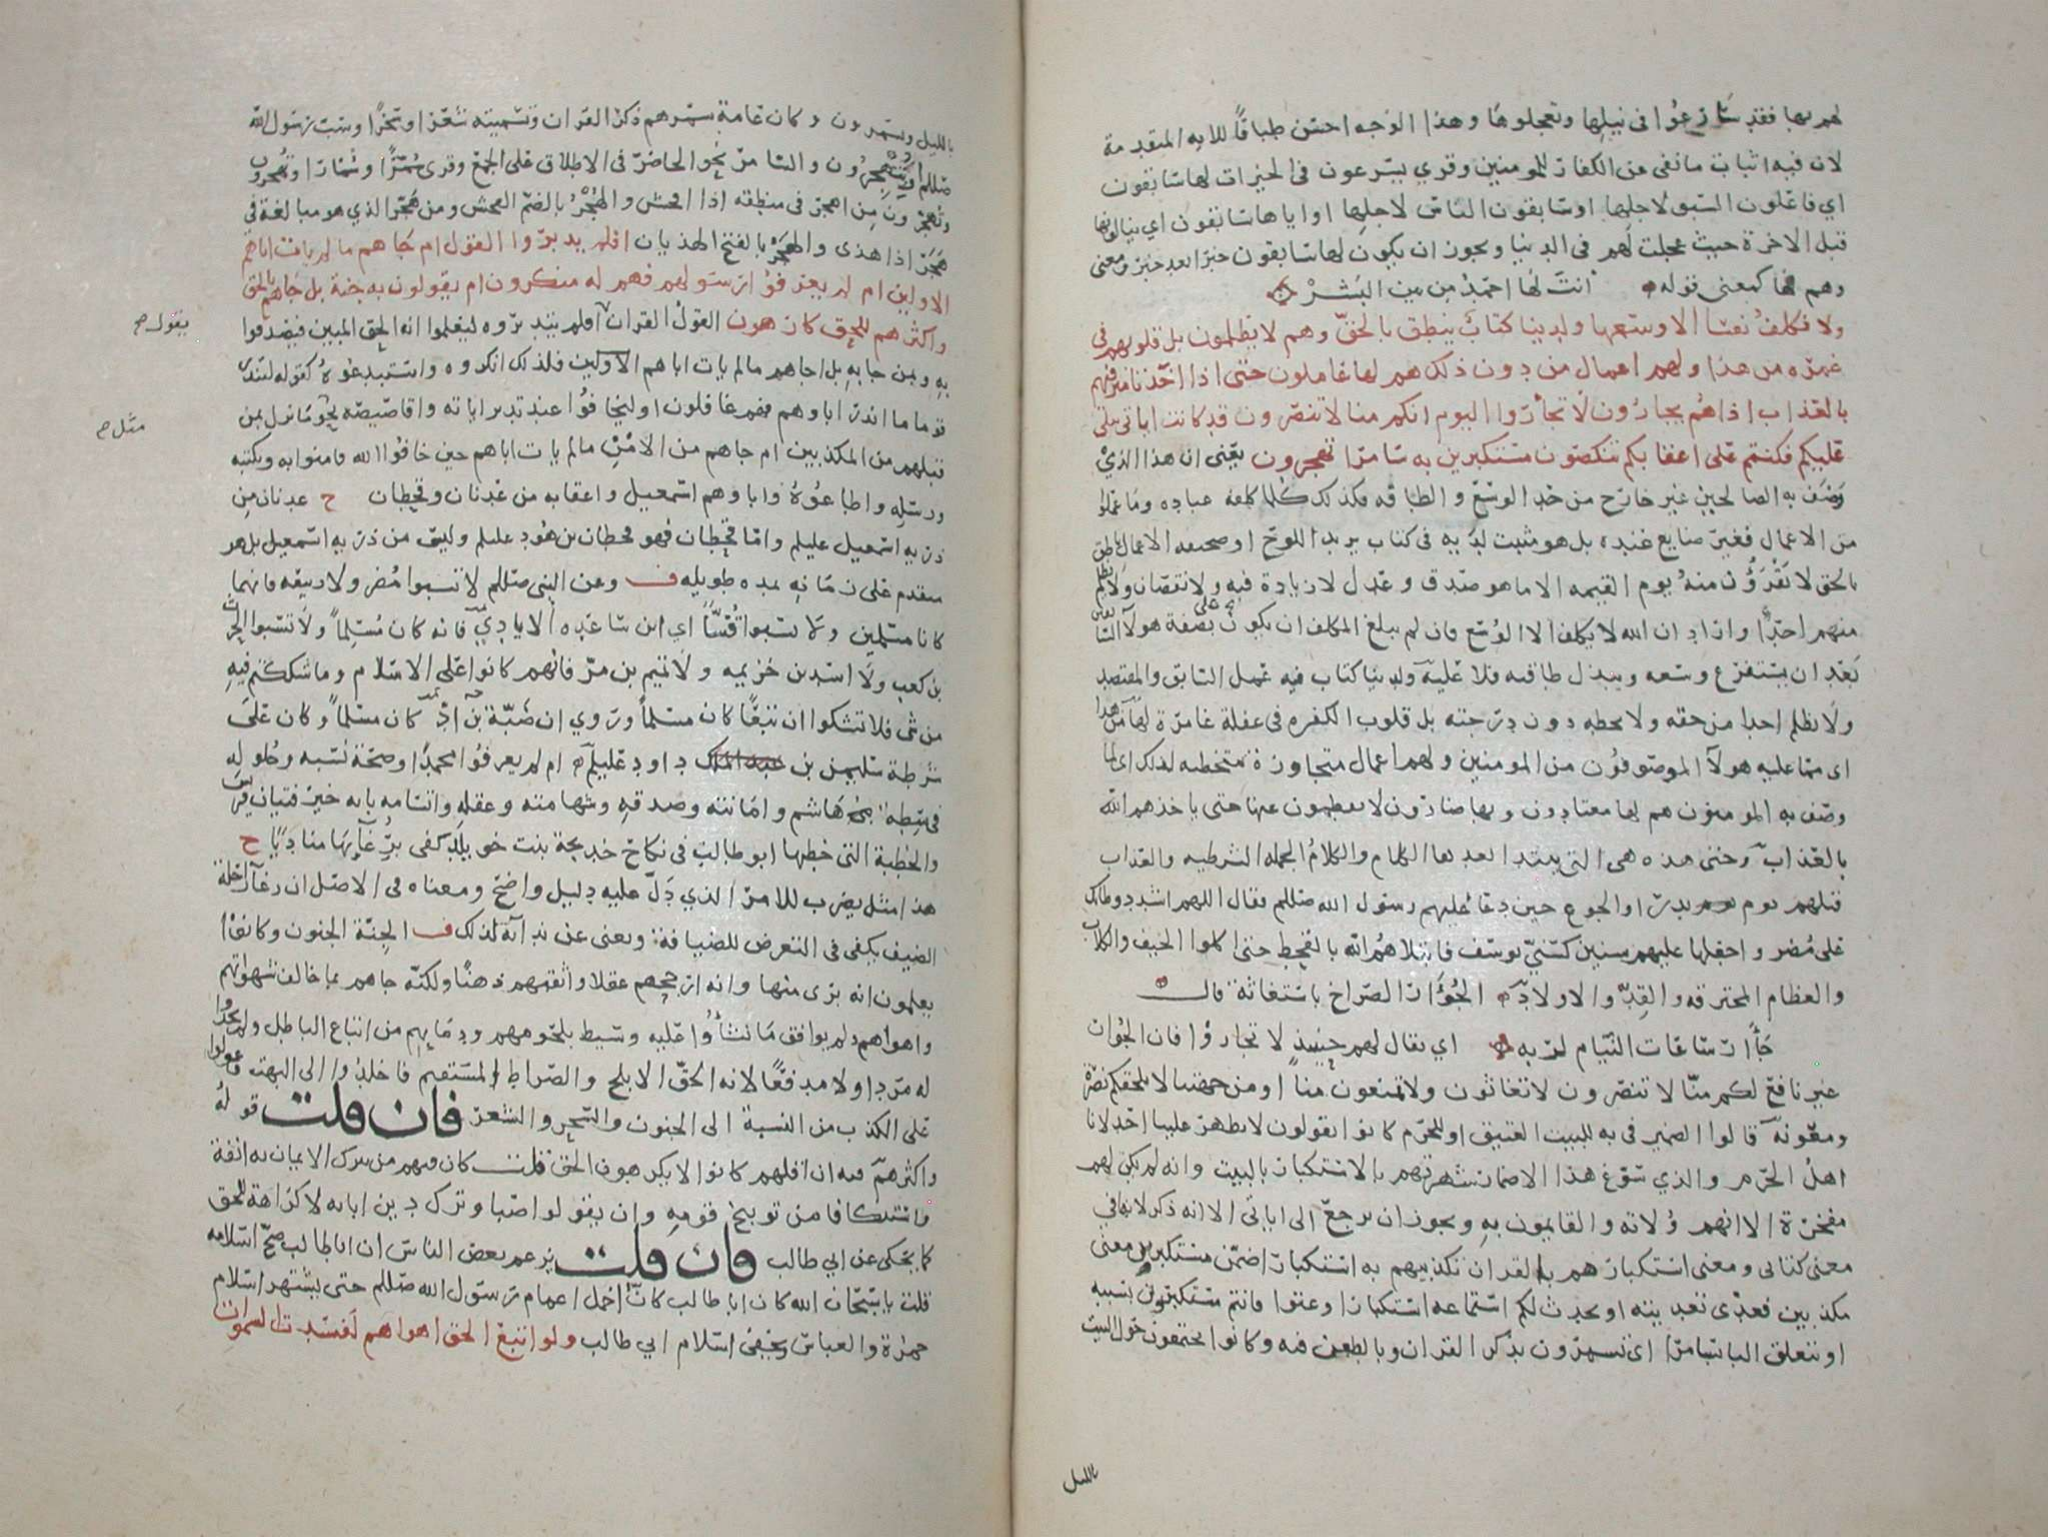 لهم بها فقد سارعوا في نيلها وتعجلوها وهذا الوجه احسن طباقًا للايه المتقدمة
لان فيه اثبات ما نفى عن الكفار للمومنين وقري يسرعون في الخيرات لها سابقون
اي فاعلون السبق لاجلها او سابقون الناس لاجلها او اياها سابقون اي ينالونها
قبل الاخرة حيث عجلت لهم في الدنيا ويجوز ان يكون لها سابقون خبرا بعد خبر ومعنى
وهم لها كمعنى قوله انت لها احمد من بين البشر
ولا نكلف نفسا الا وسعها ولدينا كتاب ينطق بالحق وهم لا يظلمون بل قلوبهم في
غمرة من هذا ولهم اعمال من دون ذلك هم لها عاملون حتى اذا اخذنا مترفيهم
بالعذاب اذا هم يجارون لا تجاروا اليوم انكم منا لا تنصرون قد كانت اياتي تتلى
عليكم فكنتم على اعقابكم تنكصون مستكبرين به سامرا تهجرون يعني ان هذا الذي
وصف به الصالحين غير خارج من حد الوسع والطاقه فكذلك كلما كلفه عباده وما عملوا
من الاعمال فغير ضايع عنده بل هو مثبت لديه في كتاب يريد اللوح او صحيفه الاعمال ناطق
بالحق لا تقرؤن منه يوم القيمه الا ما هو صدق وعدل لا زيادة فيه ولا نقصان ولا يظلم
منهم احد او اراد ان الله لا يكلف الا الوسع فان لم يبلغ المكلف ان يكون على صفة هولا السابقين
بعد ان يستفرغ وسعه ويبذل طاقته فلا عليه ولدينا كتاب فيه عمل السابق والمقتصد
ولا نظلم احدا من حقه ولا نحطه دون درجته بل قلوب الكفره في غفلة غامرة لها من هذا
اى مما عليه هولا الموصوفون من المومنين ولهم اعمال متجاوزة متخطيه لذلك اى لما
وصف به المومنون هم لها معتادون وبها ضارون لا يفطمون عنها حتى ياخذهم الله
بالعذاب وحتى هذه هي التي يبتدا بعدها الكلام والكلام الجمله الشرطيه والعذاب
قتلهم يوم بدر او الجوع حين دعا عليهم رسول الله صللم فقال اللهم اشدد وطاتك
على مضر واجعلها عليهم سنين كسني يوسف فابتلاهم الله بالقحط حتى اكلوا الجيف والكلاب
والعظام المحترقه والقد والاولاد الجؤار الصراخ باستغاثة قال
جأار ساعات النيام لربه اي يقال لهم حينيذ لا تجاروا فان الجوار
غير نافع لكم منا لا تنصرون لا تغاثون ولا تمنعون منا او من جهتنا لا يلحقكم نصر
ومعونه قالوا الضمير في به للبيت العتيق او للحرم كانوا يقولون لا يظهر علينا احد لانا
اهل الحرم والذي سوغ هذا الاضمار شهرتهم بالاستكبار بالبيت وانه لم يكن لهم
مفخرة الا انهم ولاته والقايمون به ويجوز ان يرجع الى اياتي الا انه ذكر لانها في
معنى كتابي ومعنى استكبارهم بالقران تكذيبهم به استكبارا ضمن مستكبرين معنى
مكذبين فعدى تعديته او يحدث لكم استماعه استكبارا وعتوا فانتم مستكبرون بسببه
او تتعلق البا بسامرا اى تسمرون بذكر القران وبالطعن فيه وكانوا يجتمعون حول البيت
بالليل
بالليل ويسمرون وكان عامة سمرهم ذكر القران وتسميته شعرا وسحرا وسب رسول الله
صللم او بتهجرون والسامر نحو الحاضر في الاطلاق على الجمع وقرى سمرًا وسمارا وتهجرون
وتهجرون من اهجر في منطقه اذا افحش والهجر بالضم الفحش ومن هجر الذي هو مبالغة في
هجر اذا هذى والهجر بالفتح الهذيان افلم يدبروا القول ام جاهم ما لم يات اباهم
الاولين ام لم يعرفوا رسولهم فهم له منكرون ام يقولون به جنة بل جاهم بالحق
واكثرهم للحق كارهون القول القران افلم يتدبروه ليعلموا انه الحق المبين فيصدقوا
يقول ح
به وبمن جا به بل اجاهم ما لم يات اباهم الاولين فلذلك انكروه واستبدعوه كقوله لتنذر
قوما ما انذر اباوهم فهم غافلون او ليخافوا عند تدبر اياته واقاصيصه نحو ما نزل بمن
مثل ح
قبلهم من المكذبين ام جاهم من الامن ما لم يات اباهم حين خافوا الله فامنوا به وبكتبه
ورسله واطاعوه واباوهم اسمعيل واعقابه من عدنان وقحطان ح عدنان من
ذريه اسمعيل عليلم واما قحطان فهو قحطان بن هود عليلم وليس من ذريه اسمعيل بل هو
متقدم على زمانه بمده طويله ف وعن النبي صللم لا تسبوا مضر ولا ربيعه فانهما
كانا مسلمين ولا تسبوا قسًا اي ابن ساعده الايادي فانه كان مسلمًا ولا تسبوا الحرث
بن كعب ولا اسد بن خزيمه ولا تميم بن مر فانهم كانوا على الاسلام وما شككتم فيه
من شى فلا تشكوا ان تبعًا كان مسلمًا وروي ان ضبة بن اد كان مسلمًا وكان على
شرطة سليمن بن داود عليلم ام لم يعرفوا محمدًا وصحة نسبه وحلوله
في سطة هاشم وامانته وصدقه وشهامته وعقله واتسامه بانه خير فتيان قريش
والخطبة التي خطبها ابو طالب في نكاح خديجة بنت خويلد كفى برغآيها مناديًا ح
هذا مثل يضرب للامر الذي دل عليه دليل واضح ومعناه في الاصل ان رغآ راحلة
الضيف يكفى في التعرض للضيافة ويغنى عن ندآيه لذلك ف الجنة الجنون وكانوا
يعلمون انه برى منها وانه ارجحهم عقلا واثقبهم ذهنا ولكنه جاهم بما خالف شهواتهم
واهواهم ولم يوافق ما نشأوا عليه وسيط بلحومهم ودمايهم من اتباع الباطل ولم يجدوا
له مردا ولا مدفعًا لانه الحق الابلج والصراط المستقيم فاخلدوا الى البهت وعولوا
على الكذب من النسبة الى الجنون والسحر والشعر فان قلت قوله
واكثرهم فيه ان اقلهم كانوا لا يكرهون الحق قلت كان فيهم من يترك الايمان به انفة
واستنكافا من توبيخ قومه وان يقولوا صبا وترك دين ابايه لا كراهة للحق
كما يحكى عن ابي طالب فان قلت يزعم بعض الناس ان ابا طالب صح اسلامه
قلت يا سبحان الله كان ابا طالب كان اخمل اعمام رسول الله صللم حتى يشتهر اسلام
حمزة والعباس ويخفى اسلام ابي طالب ولو اتبع الحق اهواهم لفسدت السموات